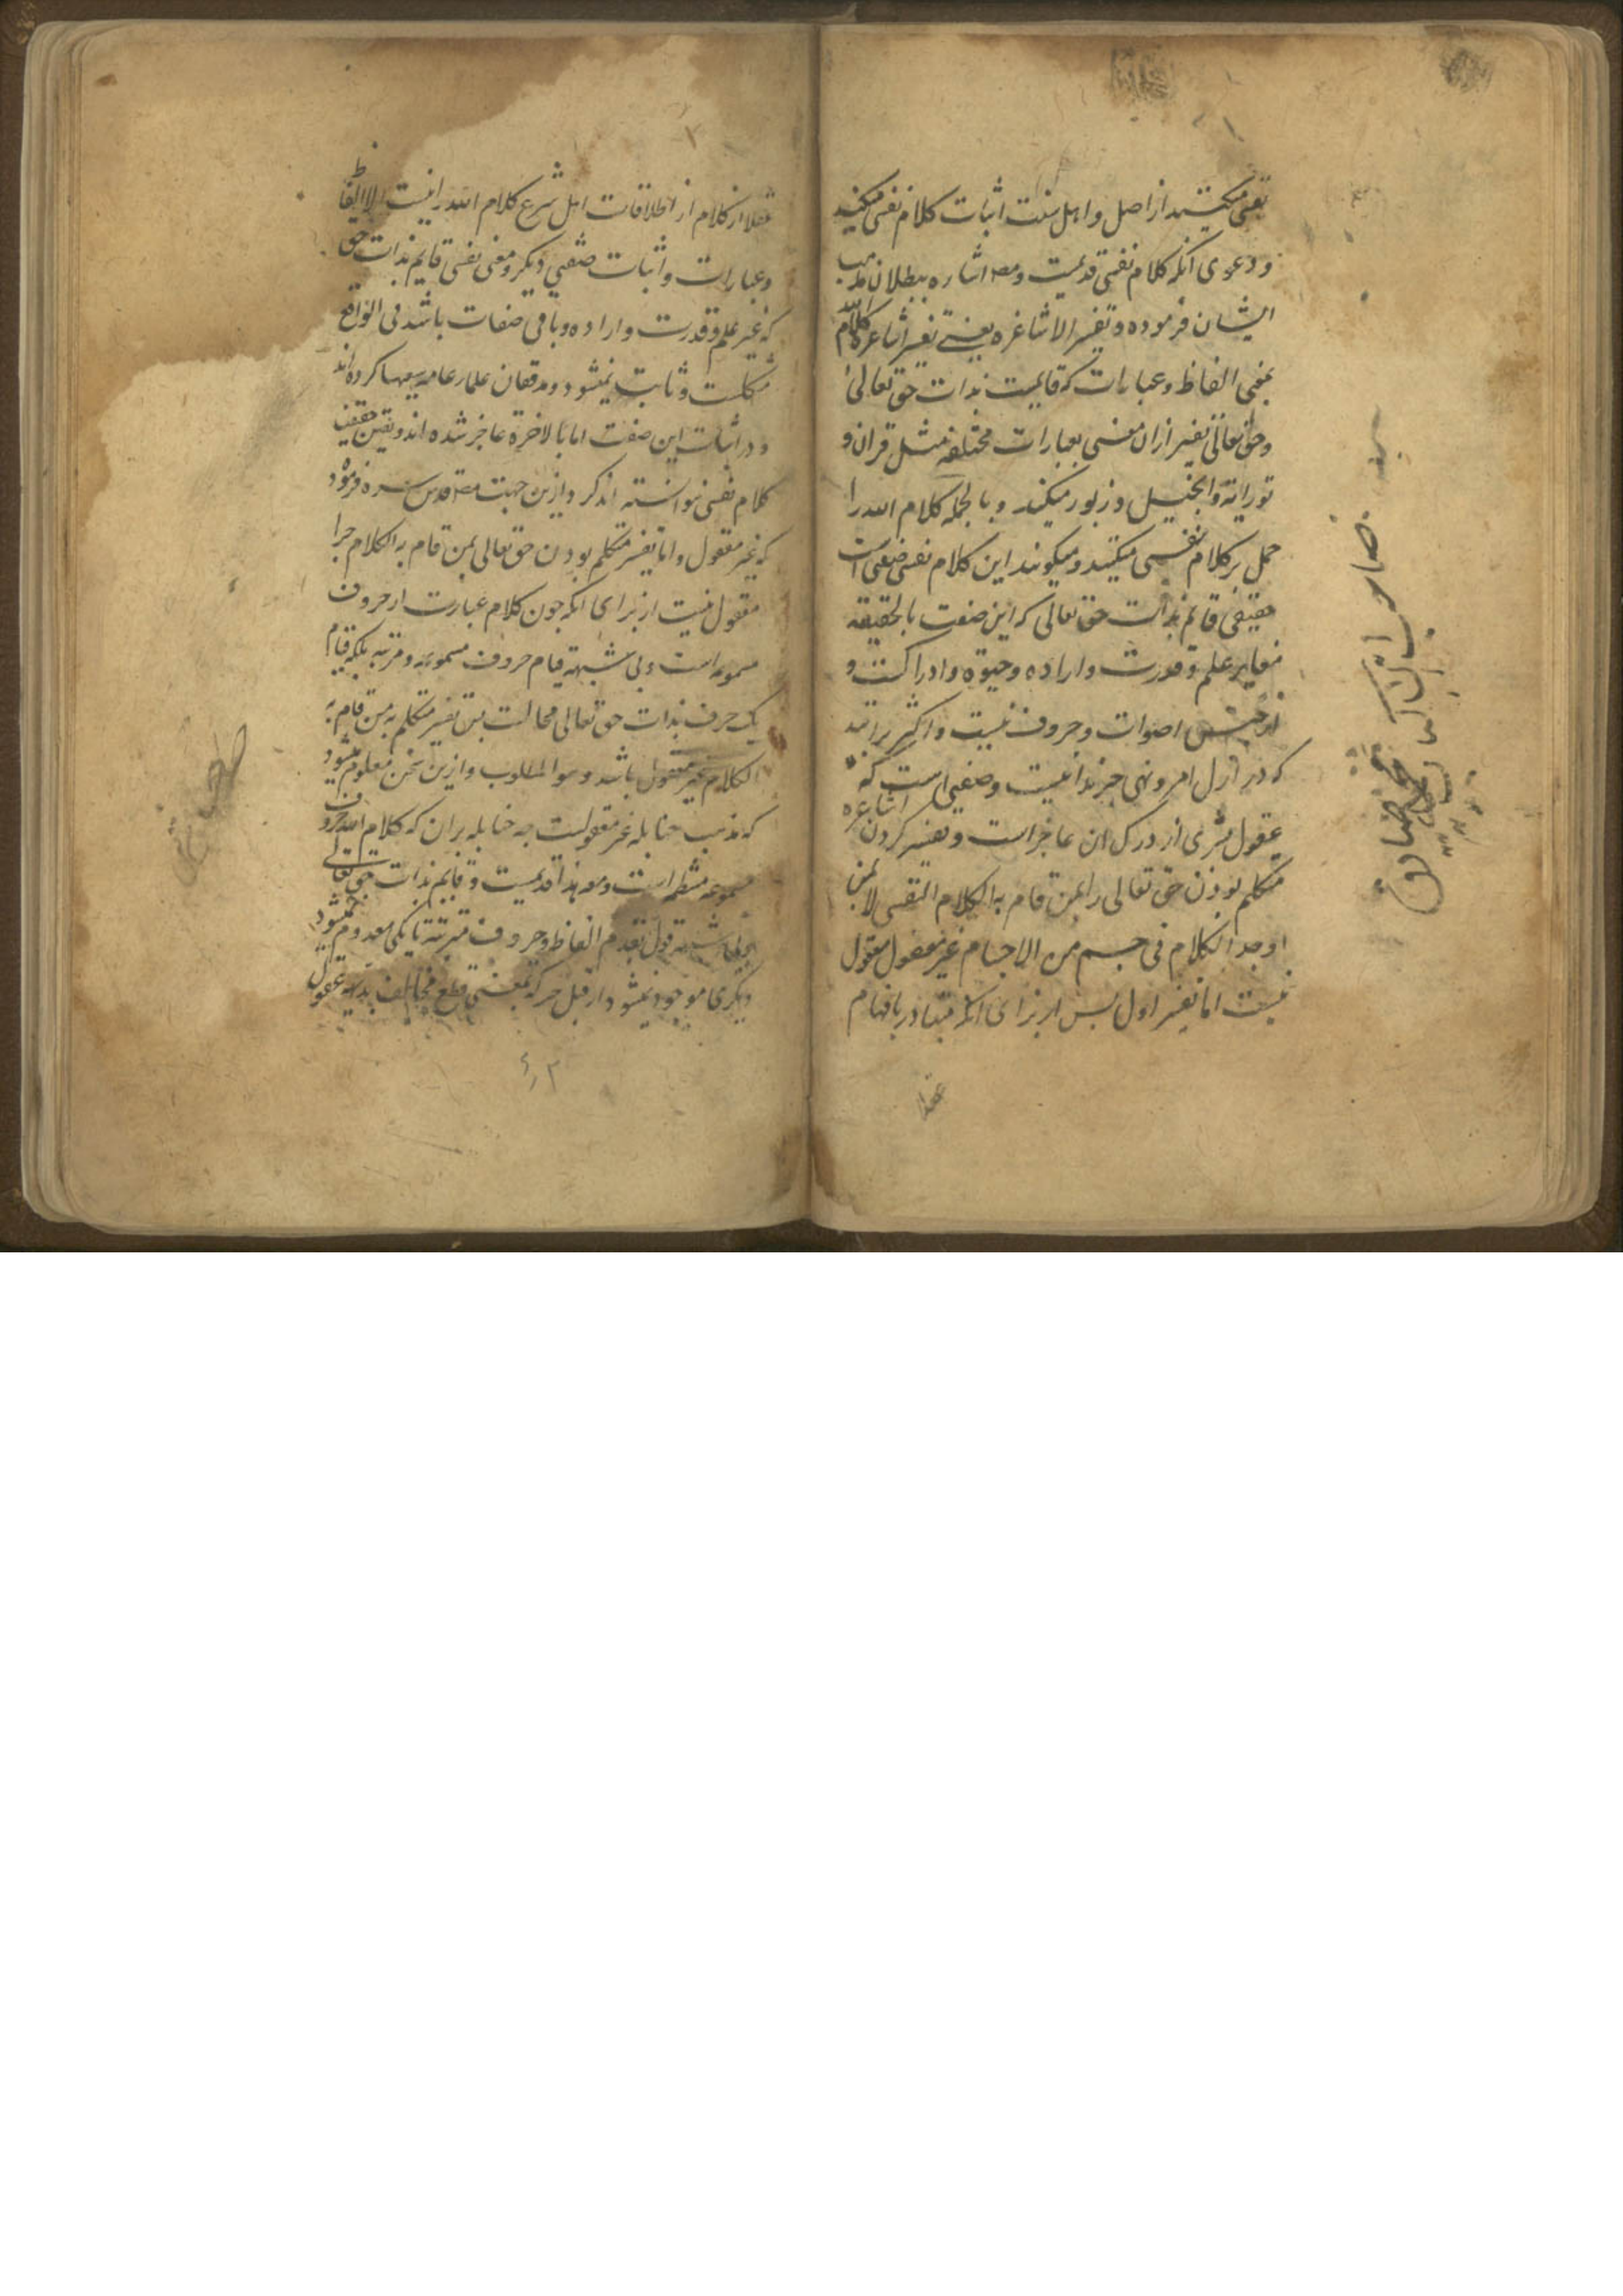 نفی میکنند از اصل و اهل سنت اثبات کلام نفسی میکنند
و دعوی انکه کلام نفسی قدیمست ومصـ اشاره ببطلان مذهب
ایشان فرموده و تفسیر الاشاعره یعنی تفسیر اشاعره کلام الله
بمعنی الفاظ و عبارات که قایمست بذات حق تعالی
و حق تعالی تفسیر ازان معنی بعبارات مختلفه مثل قران و
توراية و انجیل و زبور میکند و بالجمله کلام الله را
حمل بر کلام نفسی میکنند و میکویند این کلام نفسی صفتی است
حقیقی قائم بذات حق تعالی که این صفت بالحقیقه
مغایر علم و قدرت و اراده و حیوة و ادراکست و
از جنس اصوات و حروف نیست و اکثر برانند
که در ازل امر و نهی خبر ندا نیست و صفتی است که
عقول بشری از درک ان عاجز است و تفسیر کردن اشاعره
متکلم بودن حق تعالی را بمن قام به الکلام النفسی لا بمن
اوجد الکلام فی جسم من الاجسام غیر معقول معقول
نیست اما تفسیر اول پس از برای انکه متبادر بافهام
عقلا
صاحب
محمد صادق
عقلا از کلام از اطلاقات اهل شرع کلام الله را نیست الا الفاظ
و عبارات و اثبات صفتی دیکر و معنی نفسی قایم بذات حق
که غیر علم و قدرت و اراده و باقی صفات باشد فی الواقع
مشکلست و ثابت نمیشود و مدققان علماء عامه سعیها کرده اند
در اثبات این صفت اما بالاخرة عاجز شده اند و تعیین حقیقت
کلام نفسی نتوانسته اند کرد و ازین جهت مصـ قدس سره فرمود
که غیر معقول و اما تفسیر متکلم بودن حق تعالی بمن قام به الکلام چرا
معقول نیست از برای انکه چون کلام عبارت از حروف
مسموعه است و بی شبهه قیام حروف مسموعه و مرتبه بلکه قیام
یک حرف بذات حق تعالی محالست پس تفسیر متکلم به من قام به
الکلام غیر معقول باشد و هو المطلوب و ازین سخن معلوم میشود
که مذهب حنابله غیر معقولست چه حنابله بران که کلام الله حروف
مسموعه منتظمه است و مع هذا قدیمست و قایم بذات حق تعالی
قول بقدم الفاظ و حروف مترتبه تا یکی معدوم نمیشود
دیکری موجود نمیشود از قبل حرکه بمعنی قطع مخالف بداهه عقول